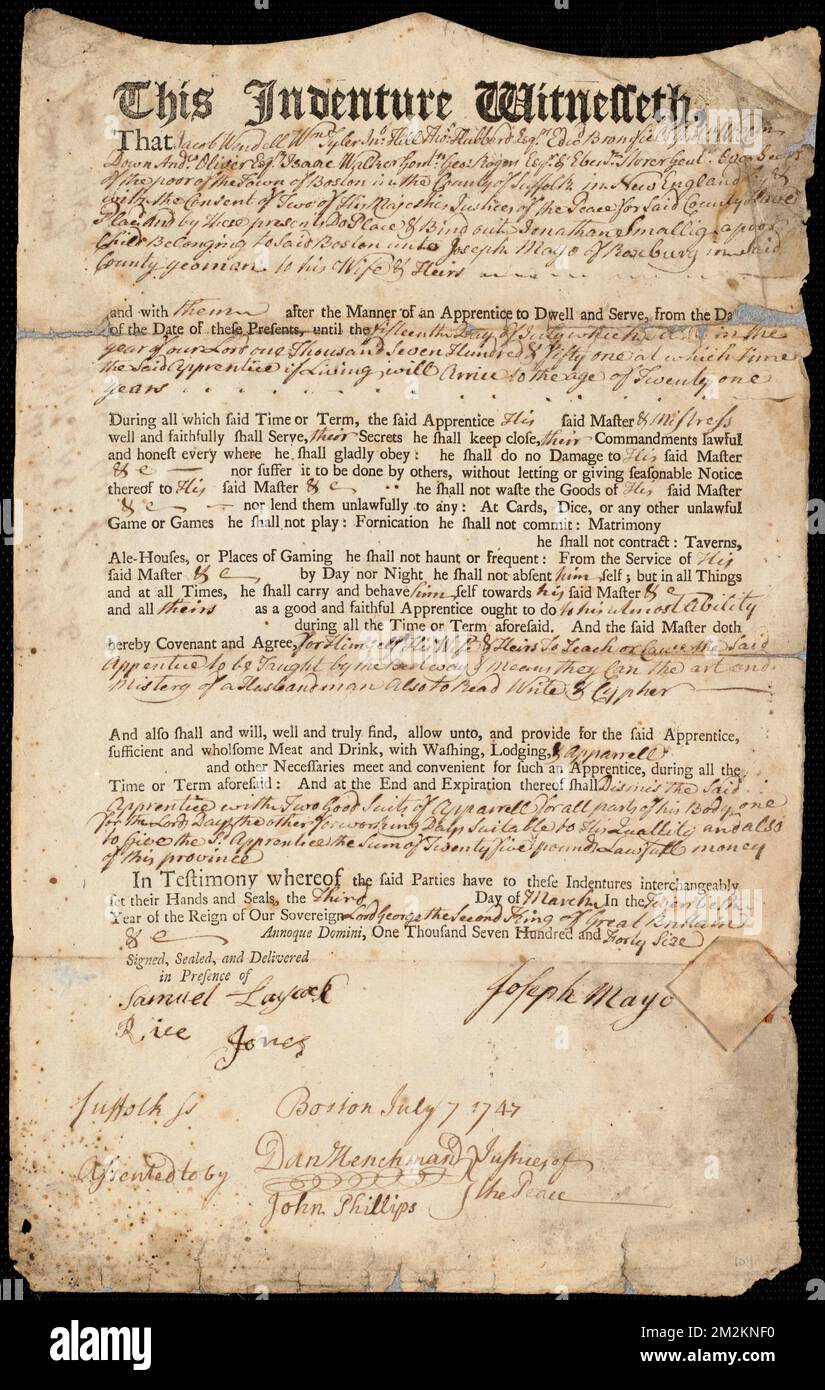 This Indenture Witnesseth,
That Jacob Wendell Wm Tyler Jno Hill Thos Hubbard Esqrs Edwd Bromfield
Down Andw Oliver Esqr Isaac Walker Gentn Geo: Rogers Esqr & Ebenr Storer Gentn Overseers
of the poor of the Town of Boston in the County of Suffolk in New England by &
with the Consent of Two of His Majesties Justices of the Peace for Said County Have
Placd And by These presents Do Place & Bind out Jonathan Smallig a poor
Child Belonging to Said Boston unto Joseph Mayo of Roxbury in Said
County yeoman to his Wife & Heirs
and with them after the Manner of an Apprentice to Dwell and Serve, from the Da
of the Date of these Presents, until the fifteenth Day of July which in the
year of our Lord one Thousand Seven Hundred & fifty one at which time
the Said Apprentice if Living will Arrive to the age of Twenty one
years
During all which said Time or Term, the said Apprentice His said Master & Mistress
well and faithfully shall Serve, their Secrets he shall keep close, their Commandments lawful
and honest every where he shall gladly obey: he shall do no Damage to His said Master
& c nor suffer it to be done by others, without letting or giving seasonable Notice
thereof to His said Master & c he shall not waste the Goods of His said Master
& c nor lend them unlawfully to any: At Cards, Dice, or any other unlawful
Game or Games he shall not play: Fornication he shall not commit: Matrimony
he shall not contract: Taverns,
Ale-Houses, or Places of Gaming he shall not haunt or frequent: From the Service of His
said Master & c by Day nor Night he shall not absent him self; but in all Things
and at all Times, he shall carry and behave him self towards his said Master & c
and all theirs as a good and faithful Apprentice ought to do to his utmost Ability
during all the Time or Term aforesaid. And the said Master doth
hereby Covenant and Agree, for Himself His Wife & Heirs To Teach or Cause the Said
Apprentice to be Taught by the best way & means they Can the art and
Mistery of a Husbandman Also to Read Write & Cypher
And also shall and will, well and truly find, allow unto, and provide for the said Apprentice,
sufficient and wholsome Meat and Drink, with Washing, Lodging, & Apparrell
and other Necessaries meet and convenient for such an Apprentice, during all the
Time or Term aforesaid: And at the End and Expiration thereof shall Dismis the Said
Apprentice with Two Good Suits of Apparrell for all parts of his Body one
for the Lords Days the other for working Days Suitable to His Quallity and also
to Give the Sd Apprentice the Sum of Twenty five pounds Lawfull money
of this province
In Testimony whereof the said Parties have to these Indentures interchangeably
set their Hands and Seals, the Third Day of March In the
Year of the Reign of Our Sovereign Lord George the Second King of Great Britain
& c Annoque Domini, One Thousand Seven Hundred and Forty Six
Signed, Sealed, and Delivered
in Presence of
Samuel Laycock Joseph Mayo
Rice Jones
Suffolk ss Boston July 7 1747
Assented to by Dan Henchman Justices of
John Phillips the Peace
104
alamy
Image ID: 2M2KNF0
www.alamy.com